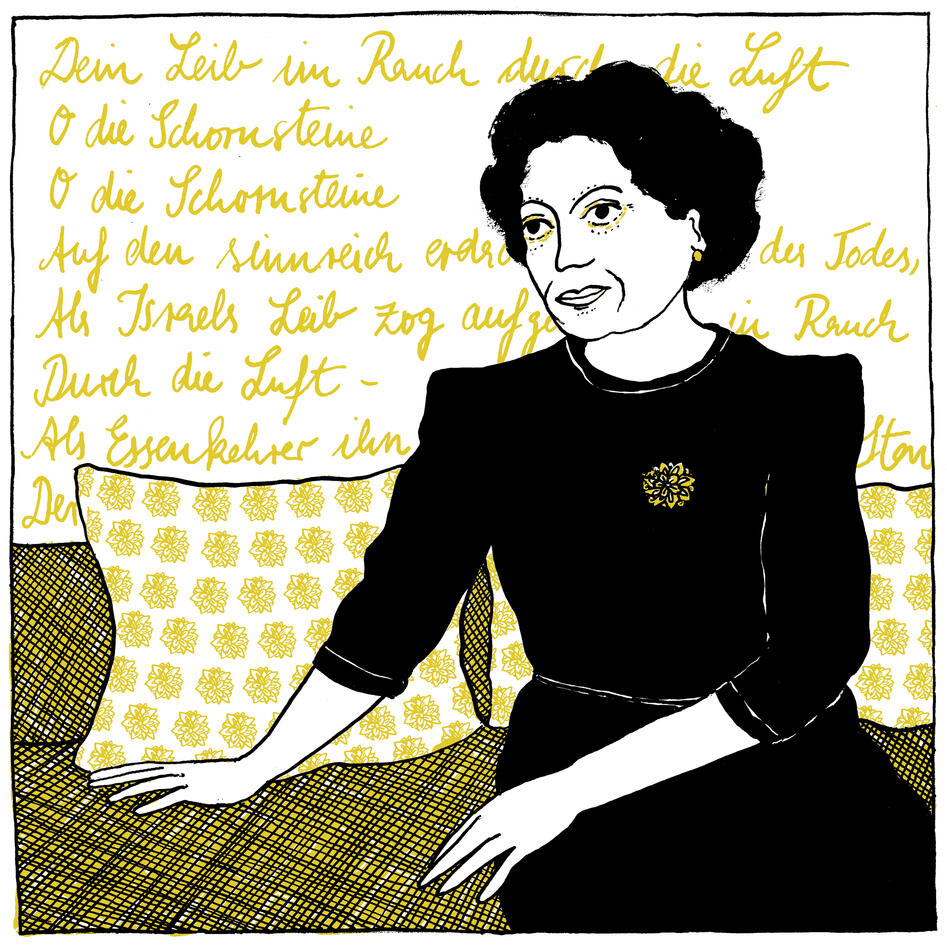 Dein Leib im Rauch durch die Luft
O die Schornsteine
O die Schornsteine
Auf den sinnreich des Todes,
Als Israels Leib zog in Rauch
Durch die Luft –
Als Essenkehrer ihn
Der